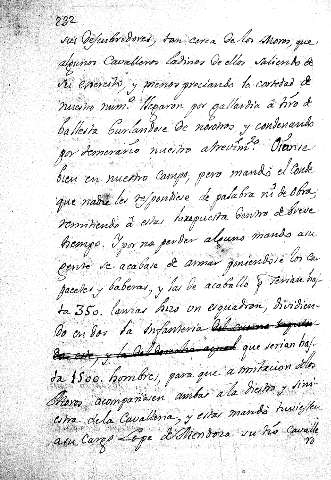 232
sus descubridores, tan cerca de los Moros, que
algunos Cavalleros ladinos de ellos saliendo de
su exercito, y menos preciando la cortedad de
nuestro num.º llegaron por gallardia à tiro de
ballesta burlandose de nosotros y condenando
por temerario nuestro atrevim.to Oianse
bien en nuestro Campo, pero mandó el Conde
que nadie les respondiese de palabra ni de obra,
remitiendo à estas la respuesta dentro de breve
tiempo. Y por no perder alguno mando a su
gente se acabase de armar poniendose los Ca
pacetes y baberas, y las de acaballo q. serian has
ta 350. lanzas hizo un esquadron, dividien
do en dos la Infanteria que serian has
ta 1500. hombres, para que a imitacion de los
Moros acompañasen ambas a la diestra y sini
estra de la Cavalleria, y estas mandó tuviese
a su Cargo Lope de Mendoza su tio, cavalle
ro